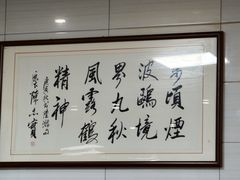 万頃煙
波鷗境
界九秋
風露鶴
精神